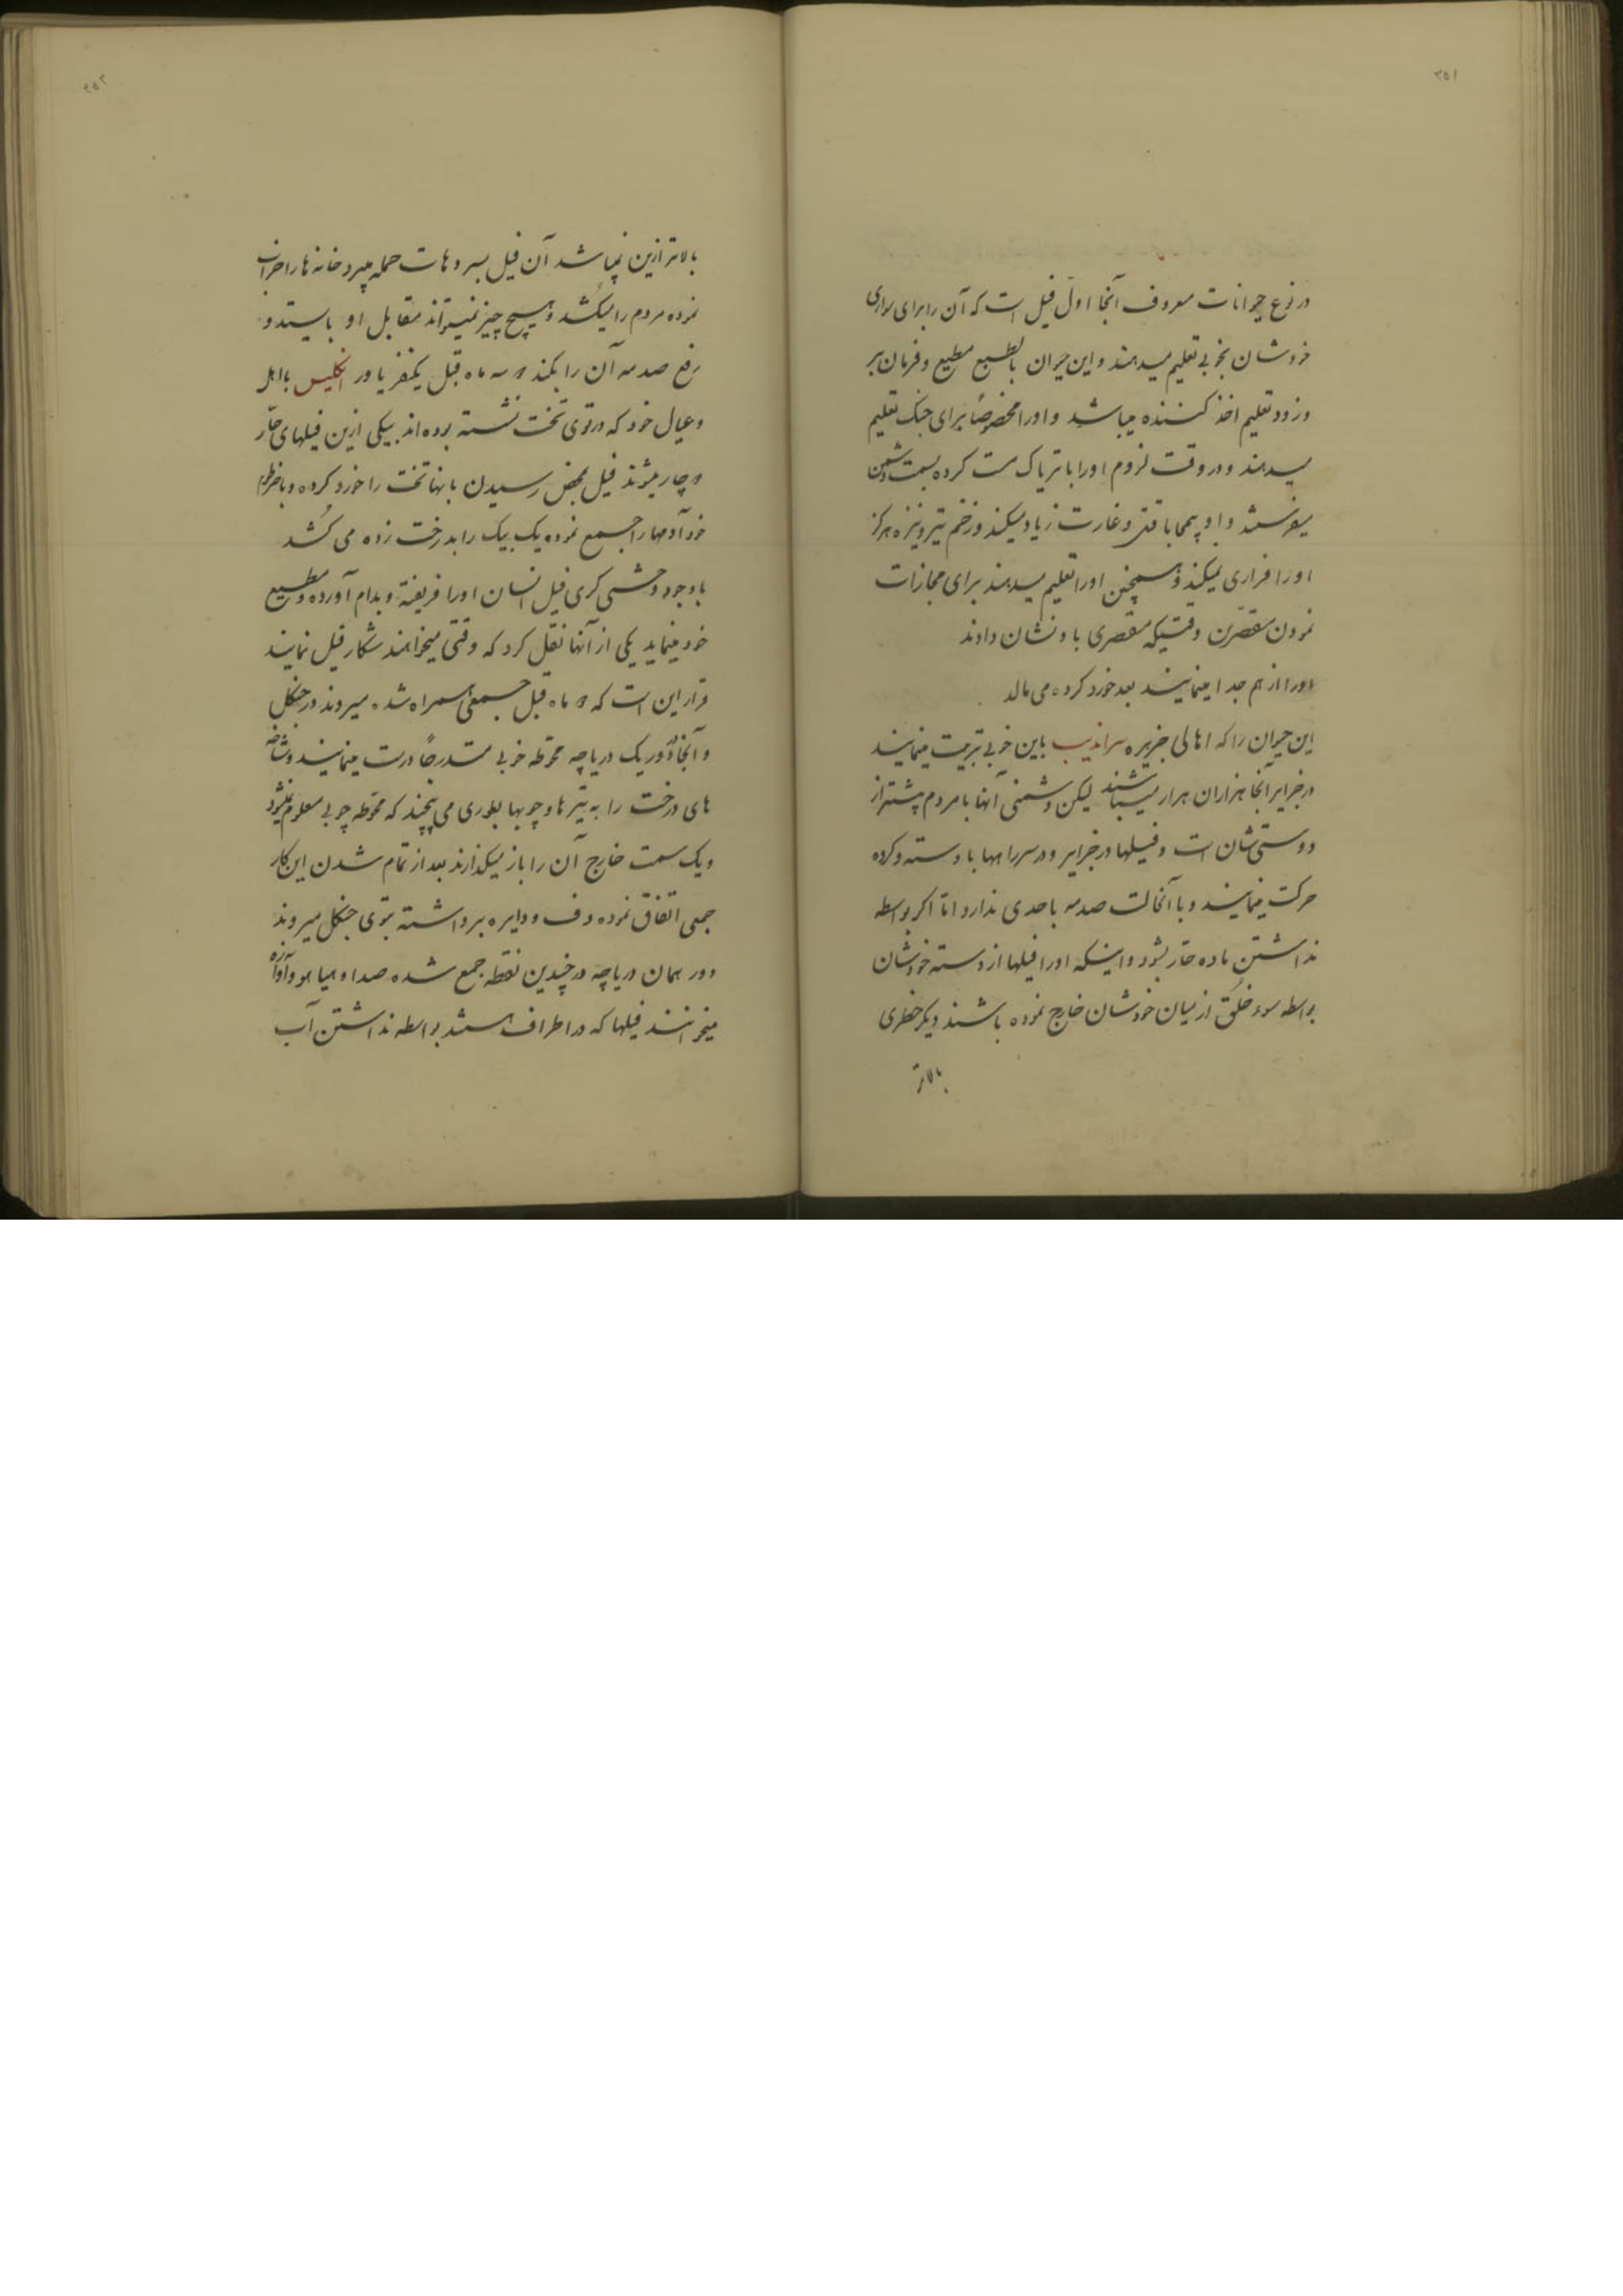 ۲۵۱
در نوع حیوانات معروف آنجا اول فیل است که آن را برای سواری
خودشان بخوبی تعلیم میدهند و این حیوان بالطبع مطیع و فرمان بر
و زود تعلیم اخذ کننده میباشد و او را مخصوصاً برای جنک تعلیم
میدهند و در وقت لزوم او را با تریاک مست کرده بسمت دشمن
میفرستند و او بیمحابا قتل و غارت زیاد میکند و زخم تیر و نیزه هرکز
او را فراری نمیکند و همچنین او را تعلیم میدهند برای مجازات
نمودن مقصرین وقتیکه مقصری باو نشان دادند
او را از هم جدا مینمایند بعد خورد کرده می مالد
این حیوان را که اهالی جزیره سراندیب باین خوبی تربیت مینمایند
در جزایر آنجا هزاران هزار میباشند لیکن دشمنی آنها با مردم بیشتر از
دوستی شان است و فیلها در جزایر و در سر راهها با دسته و کرده
حرکت مینمایند و با آنحالت صدمه باحدی ندارد اما اکر بواسطه
نداشتن ماده حار بشود و اینکه او را فیلها از دسته خودشان
بواسطه سوء خلق از میان خودشان خارج نموده باشند دیگر خطری
بالاتر
۲۵۲
بالاتر ازین نمیباشد آن فیل بسر دهات حمله میبرد خانه ها را خراب
نموده مردم را میکشد و هیچ چیز نمیتواند مقابل او بایستد و
رفع صدمه آن را بکند سه ماه قبل یکنفر یاور انکلیس با اهل
و عیال خود که در توی تخت نشسته بوده اند بیکی ازین فیلهای حار
دچار میشوند فیل بمحض رسیدن بانها تخت را خورد کرده و با خرطوم
خود آدمها را جمع نموده یک بیک را بدرخت زده می کشد
با وجود وحشی کری فیل انسان او را فریفته و بدام آورده و مطیع
خود مینماید یکی از آنها نقل کرد که وقتی میخواهند شکار فیل نمایند
قرار این است که ماه قبل جمعی همراه شده میروند در جنکل
و آنجا دور یک دریاچه محوطه خوبی متدرجاً درست مینمایند و شاخه
های درخت را به تیرها و چوبها بطوری می پیچند که محوطه چوبی معلوم نمیشود
و یک سمت خارج آن را باز میکذارند بعد از تمام شدن این کار
جمعی اتفاق نموده دف و دایره برداشته بتوی جنکل میروند
دور همان دریاچه در چندین نقطه جمع شده صدا و هیاهو و آوازه
میخوانند فیلها که در اطراف هستند بواسطه نداشتن آب